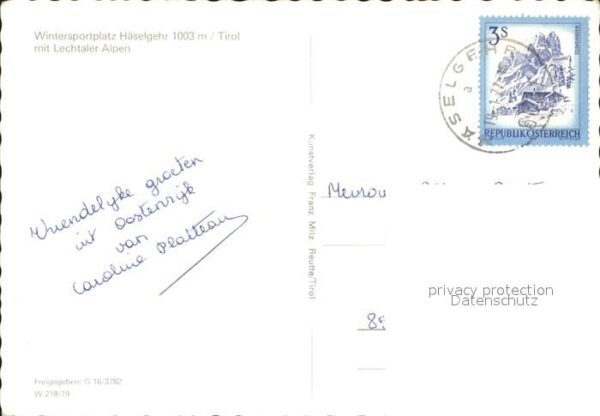 Wintersportplatz Häselgehr 1003 m / Tirol
mit Lechtaler Alpen
3S
REPUBLIK ÖSTERREICH
Vriendelyke groeten
uit Oostenrijk
van
Caroline Platteau
Kunstverlag Franz Milz, Reutte/Tirol
privacy protection
Datenschutz
Freigegeben: G 16-3782
W 218/19